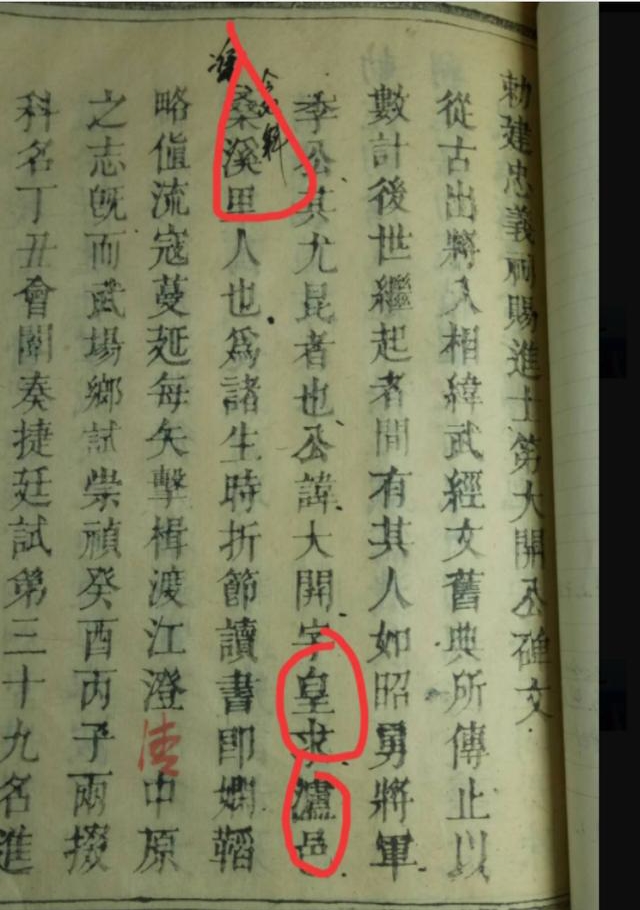 勅建忠義祠賜進士第大開公碑文
從古出將入相緯武經文舊典所傳止以
數計後世繼起者間有其人如昭勇將軍
季公其尤昆者也公諱大開字皇求瀘邑
桑溪里人也爲諸生時折節讀書即嫻韜
略值流寇蔓延每矢擊楫渡江澄清中原
之志旣而武場鄉試崇禎癸酉丙子兩掇
科名丁丑會闈奏捷廷試第三十九名進